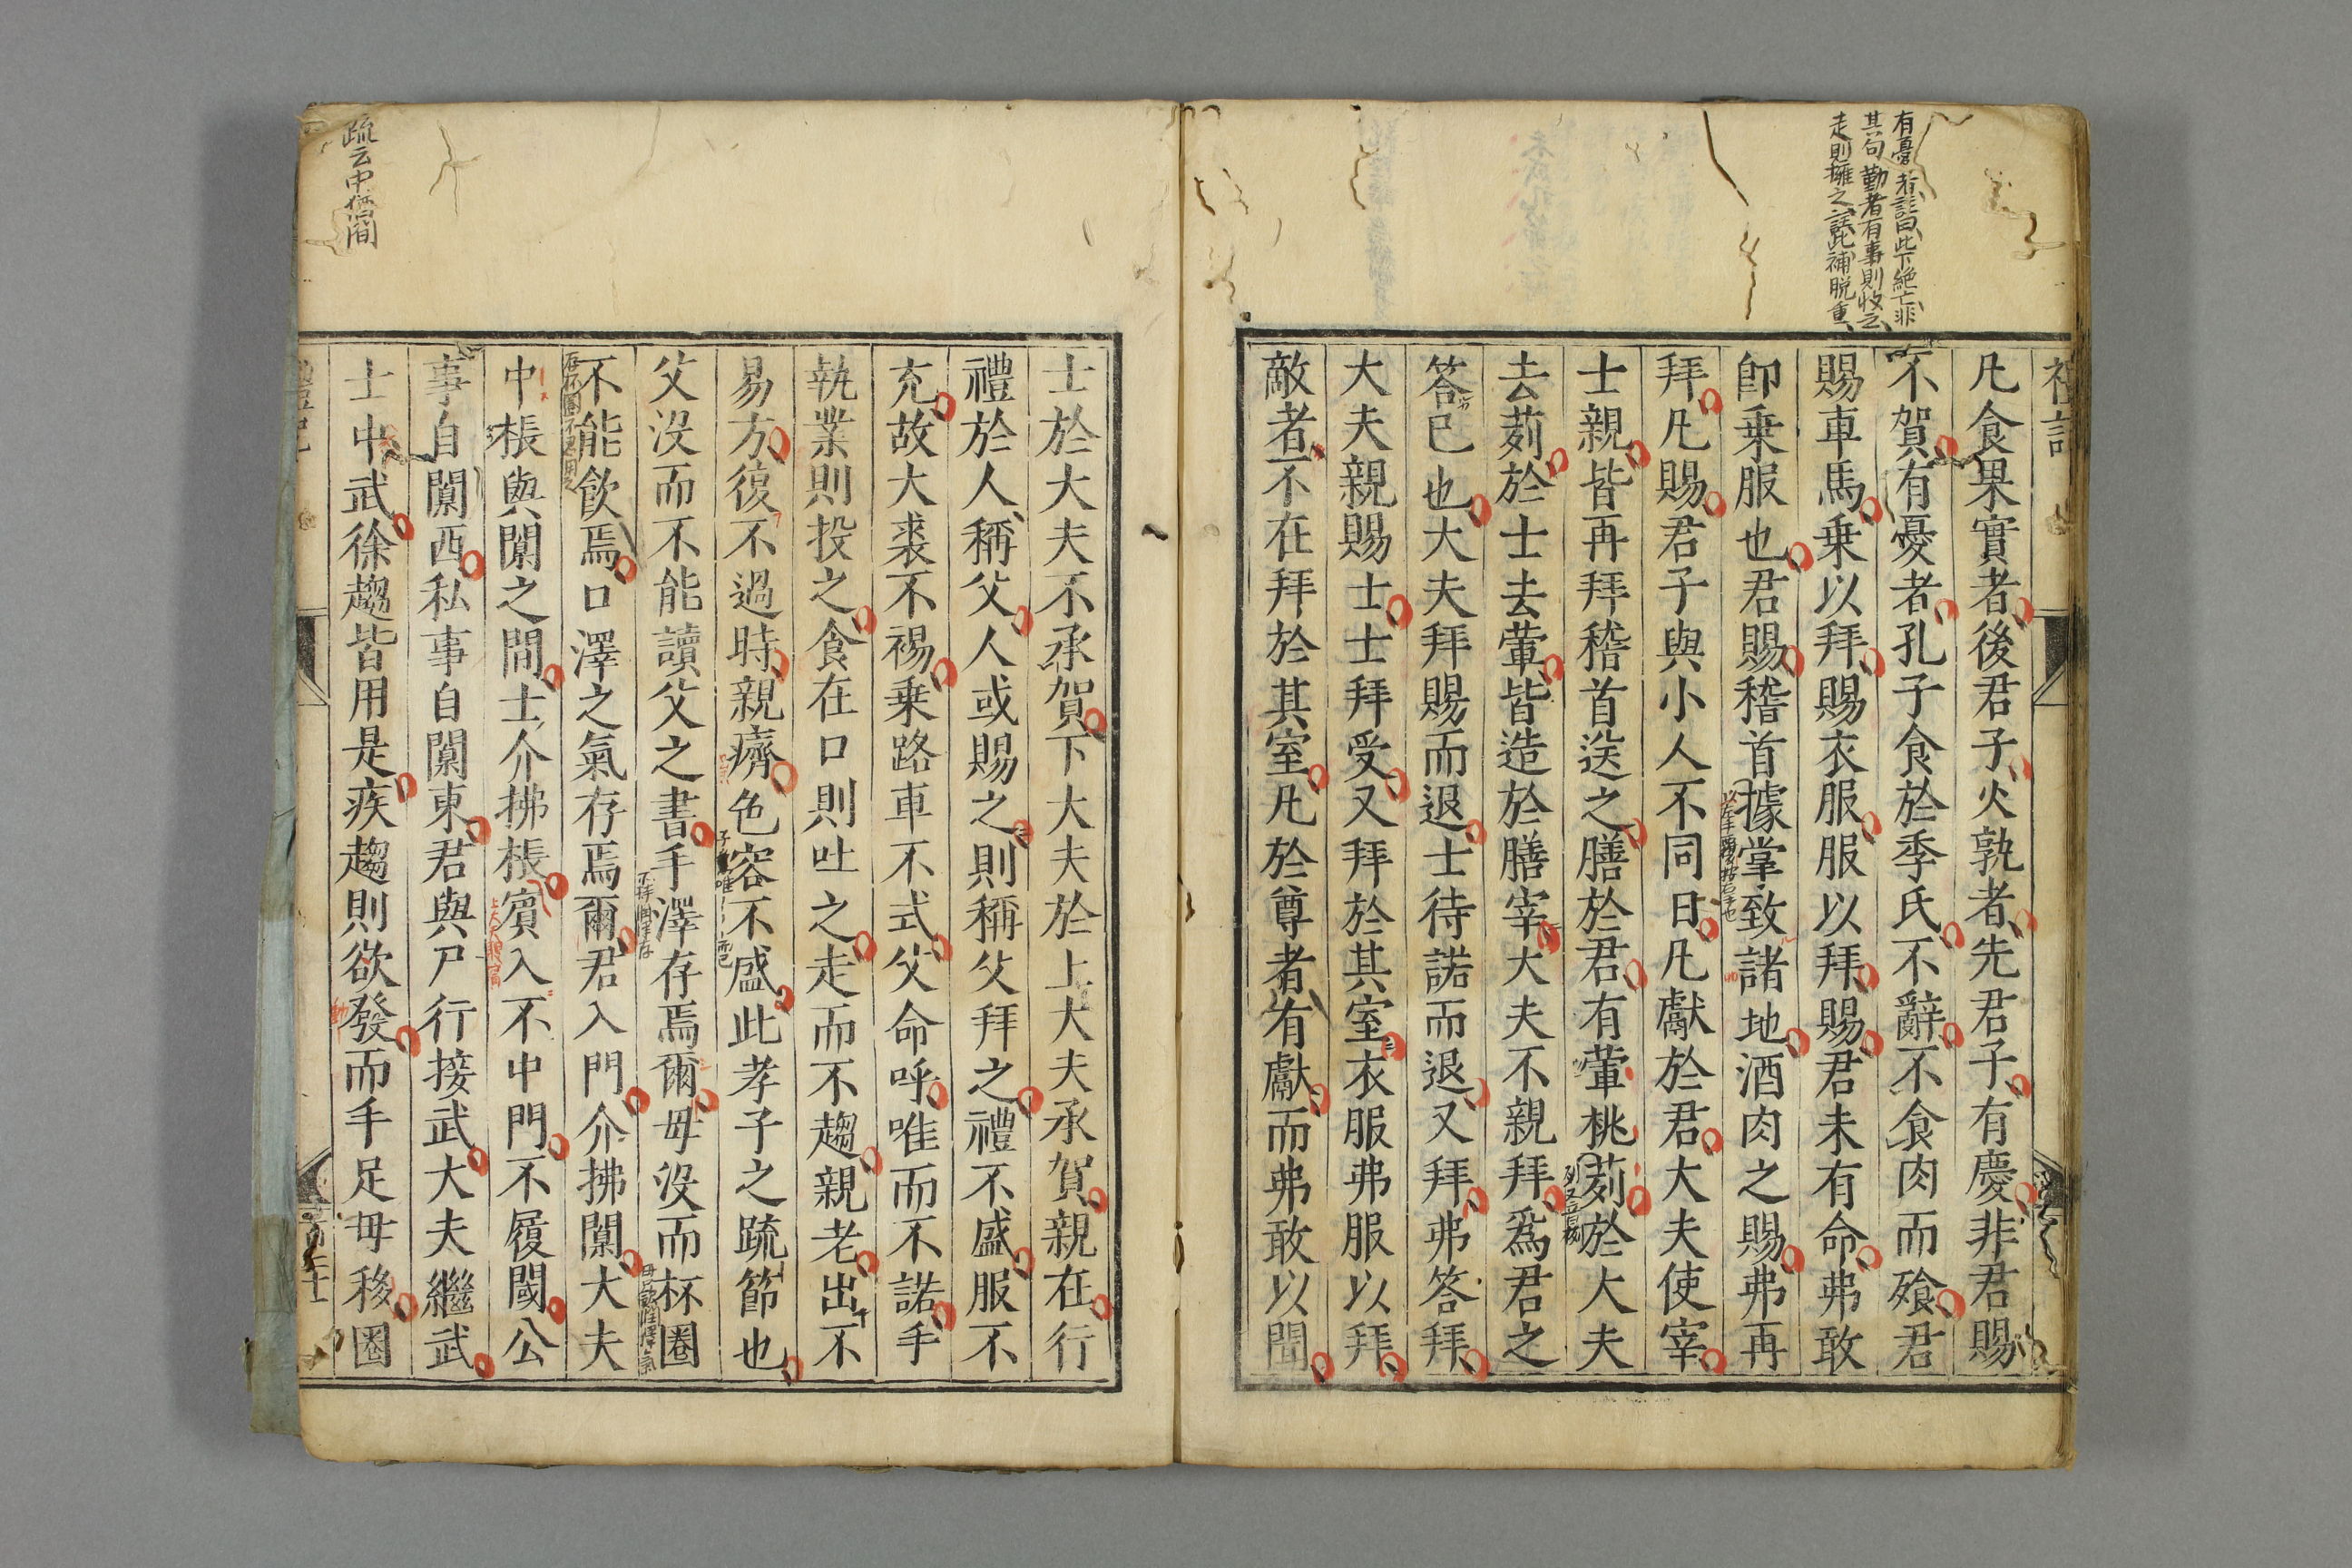 有憂者註曰此下絶亡非
其句勤者有事則收之
走則擁之註此補脱重
禮記
凡食果實者後君子火孰者先君子有慶非君賜
不賀有憂者孔子食於季氏不辭不食肉而飱君
賜車馬乗以拜賜衣服服以拜賜君未有命弗敢
卽乗服也君賜稽首據掌致諸地酒肉之賜弗再
拜凡賜君子與小人不同日凡獻於君大夫使宰
士親皆再拜稽首送之膳於君有葷桃茢於大夫
去茢於士去葷皆造於膳宰大夫不親拜爲君之
答已也大夫拜賜而退士待諾而退又拜弗答拜
大夫親賜士士拜受又拜於其室衣服弗服以拜
敵者不在拜於其室凡於尊者有獻而弗敢以聞
士於大夫不承賀下大夫於上大夫承賀親在行
禮於人稱父人或賜之則稱父拜之禮不盛服不
充故大裘不裼乗路車不式父命呼唯而不諾手
執業則投之食在口則吐之走而不趨親老出不
易方復不過時親癠色容不盛此孝子之䟽節也
父没而不能讀父之書手澤存焉爾母没而杯圈
不能飲焉口澤之氣存焉爾君入門介拂闑大夫
中棖與闑之間士介拂棖賓入不中門不履閾公
事自闑西私事自闑東君與尸行接武大夫繼武
士中武徐趨皆用是疾趨則欲發而手足毋移圈
疏云中猶間